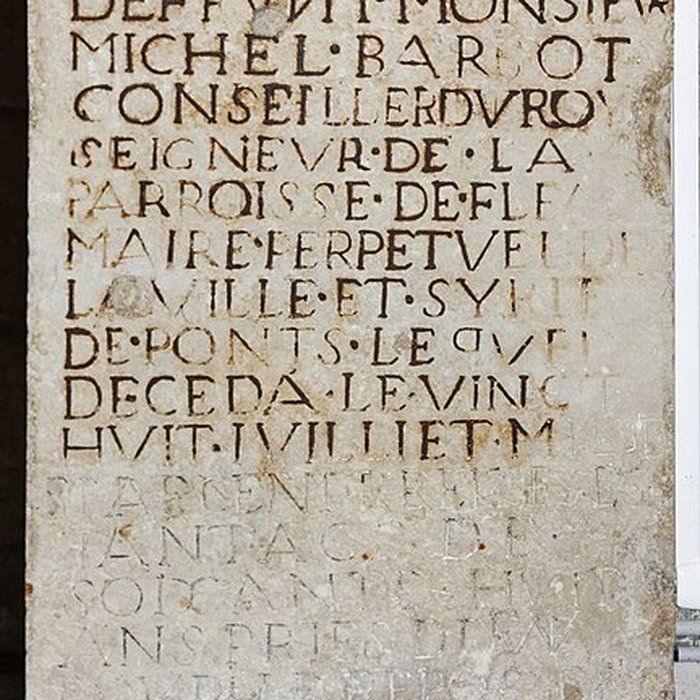 DEFFVNT·MONSIEVR
MICHEL·BARBOT
CONSEILLER DV ROY
SEIGNEVR·DE·LA
PARROISSE·DE·FLEA
MAIRE·PERPETVEL DE
LA VILLE·ET·SYRIE
DE·PONTS·LEQVEL
DECEDA·LE·VINGT
HVIT·IVILLIET·M
ANT AGE DE
SOIXANTE HVIT
ANS PRIES DIEV